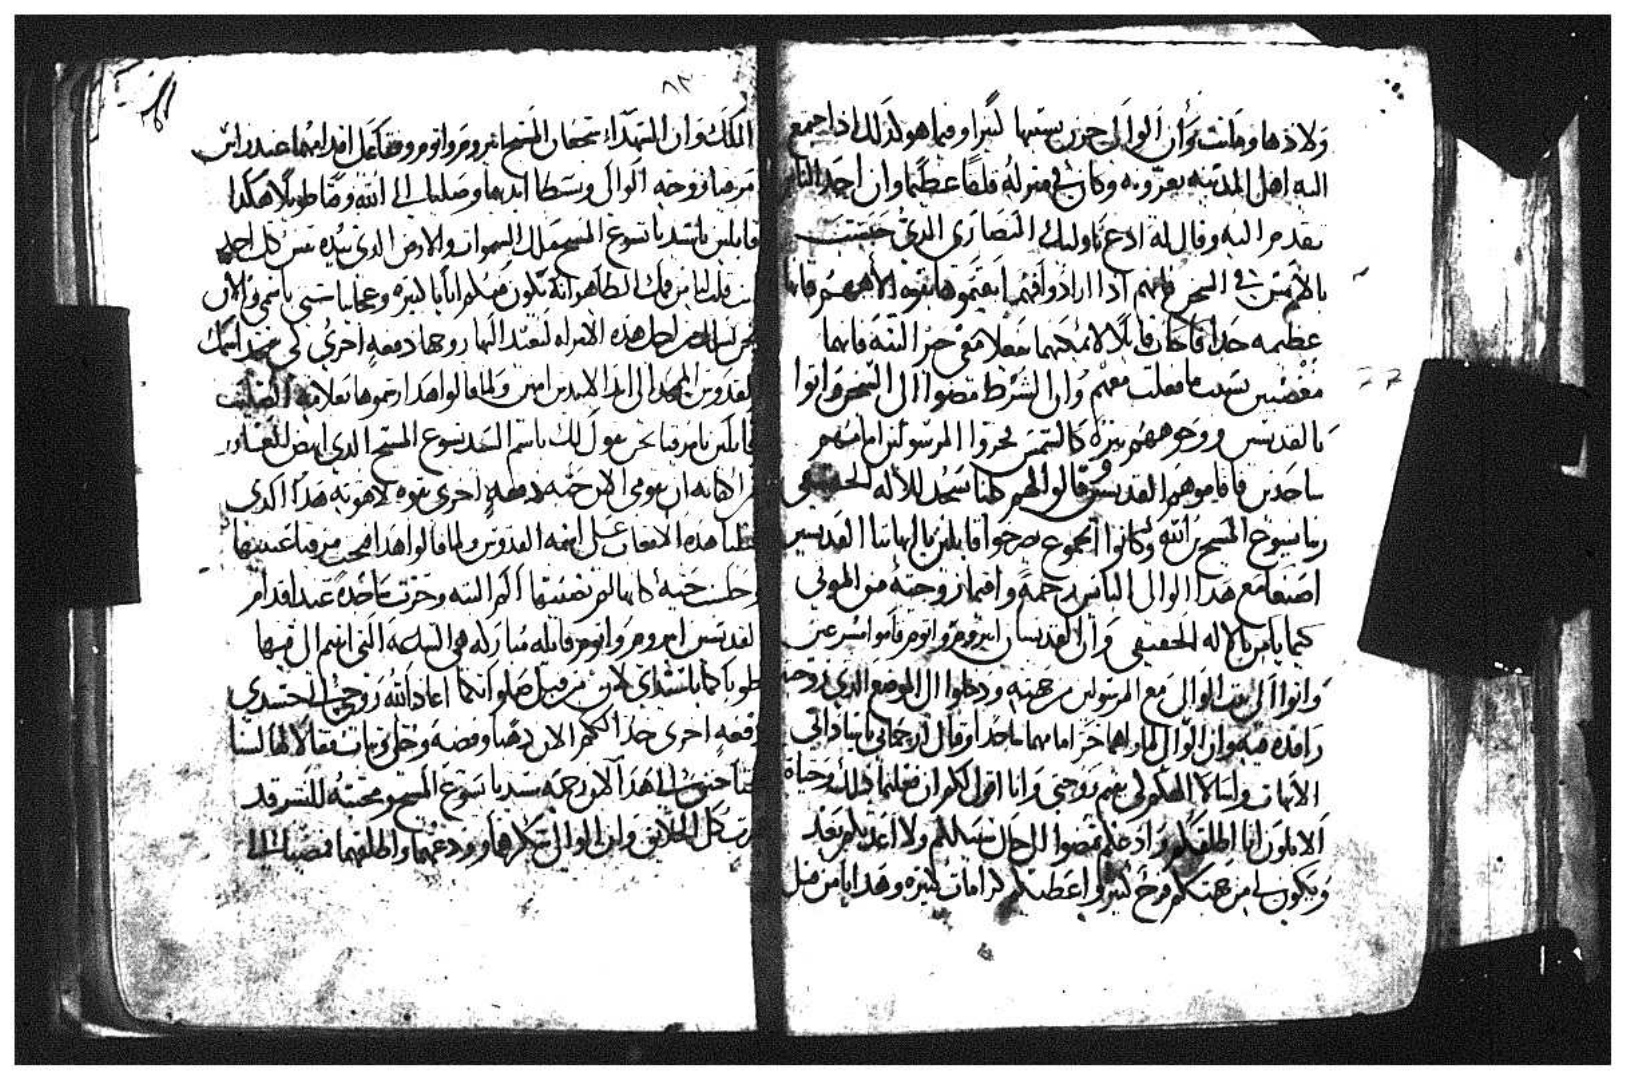 ولادها وماتت وان الوالي حزن بسببها كثيرا وفيما هو كذلك اذا جميع
اليه اهل المدينة يعزونه وكان في منزله قلقا عظيما وان احد الناس
تقدم اليه وقال له ادع اوليك النصارى الذي حبست
بالامس في السجن فانهم اذا ارادوا اقيموها بقوة الاههم فانها
عظيمه جدا فاجاب قايلا لا يمكنهما
مغضبين بسبب ما فعلت معهم وان الشرط مضوا الى السجن واتوا
بالقديسين ووجوههم نيره كالشمس فخروا المرسولين امامهم
ساجدين فاقاموهم القديسين وقالوا لهم كلنا نسجد للاله الحقيقي
ربنا يسوع المسيح بن الله وكانوا الجموع يصرخوا قايلين يا ايها القديسين
اصنعا مع هذا الوالي الباس رحمة واقيما زوجته من الموتى
كيما يامن بالاله الحقيقي وان القديسان وانوم قاموا مسرعين
واتوا الى بيت الوالي مع المرسولين من جهته ودخلوا الى الموضع الذي زوجته
راقده فيه وان الوالي لما راهما خر امامهما ساجدا وقال ارحماني يا ساداتي
الاثنان واسالا الهكم لي يقيم زوجتي وانا اقول لكم ان فعلتما ذلك وحياة
الابلون انا اطلقكم وادعكم تمضوا الى حال سبيلكم ولا اعذبكم بعد
ويكون لي من جهتكم فرح كثير واعطيكم كرامات كثيره وهدايا من قبل
٨٣
الملك وان الشهداء المسيح وانوم وقفا عند راس
مرضا زوجه الوالي وبسطا ايديهما وصليا الى الله وقتا طويلا هكذا
قايلين يا سيدنا يسوع المسيح ملك السموات والارض الذي بيده نفس كل احد
انت قلت لنا من فمك الطاهر انه يكون منكم ايات كثيره وعجايب باسمي والان
نحن نسالك من اجل هذه الامراه لتعيد اليها روحها دفعه اخرى لكي يتمجد اسمك
القدوس المجد الى ابد الابدين امين ولما قالوا هذا رشموها بعلامة الصليب
قايلين يا مرضا نحن نقول لك باسم السيد يسوع المسيح الذي انهض العازر
من اكفانه ان تقومي الان حيه دفعه اخرى بقوة لاهوته هذا الذي
قبلنا هذه الاتعاب على اسمه القدوس ولما قالوا هذا فتحت مرضا عينيها
وجلست حيه كانها لم تصيبها الم البته وخرت ساجدة عند اقدام
القديسين وانوم قايله مباركه هي الساعة التي اتيتم الي فيها
طوباكما يا سيداي لان من قبل صلواتكما اعاد الله روحي الى جسدي
دفعه اخرى خذا لكم الان ذهبا وفضه وحلي وثياب فقالا لها لسنا
محتاجين الى هذا الان رحمة سيدنا يسوع المسيح ومحبته للبشر قد
كل الخلايق وان الوالي شكرهما وودعهما واطلقهما فمضيا الى